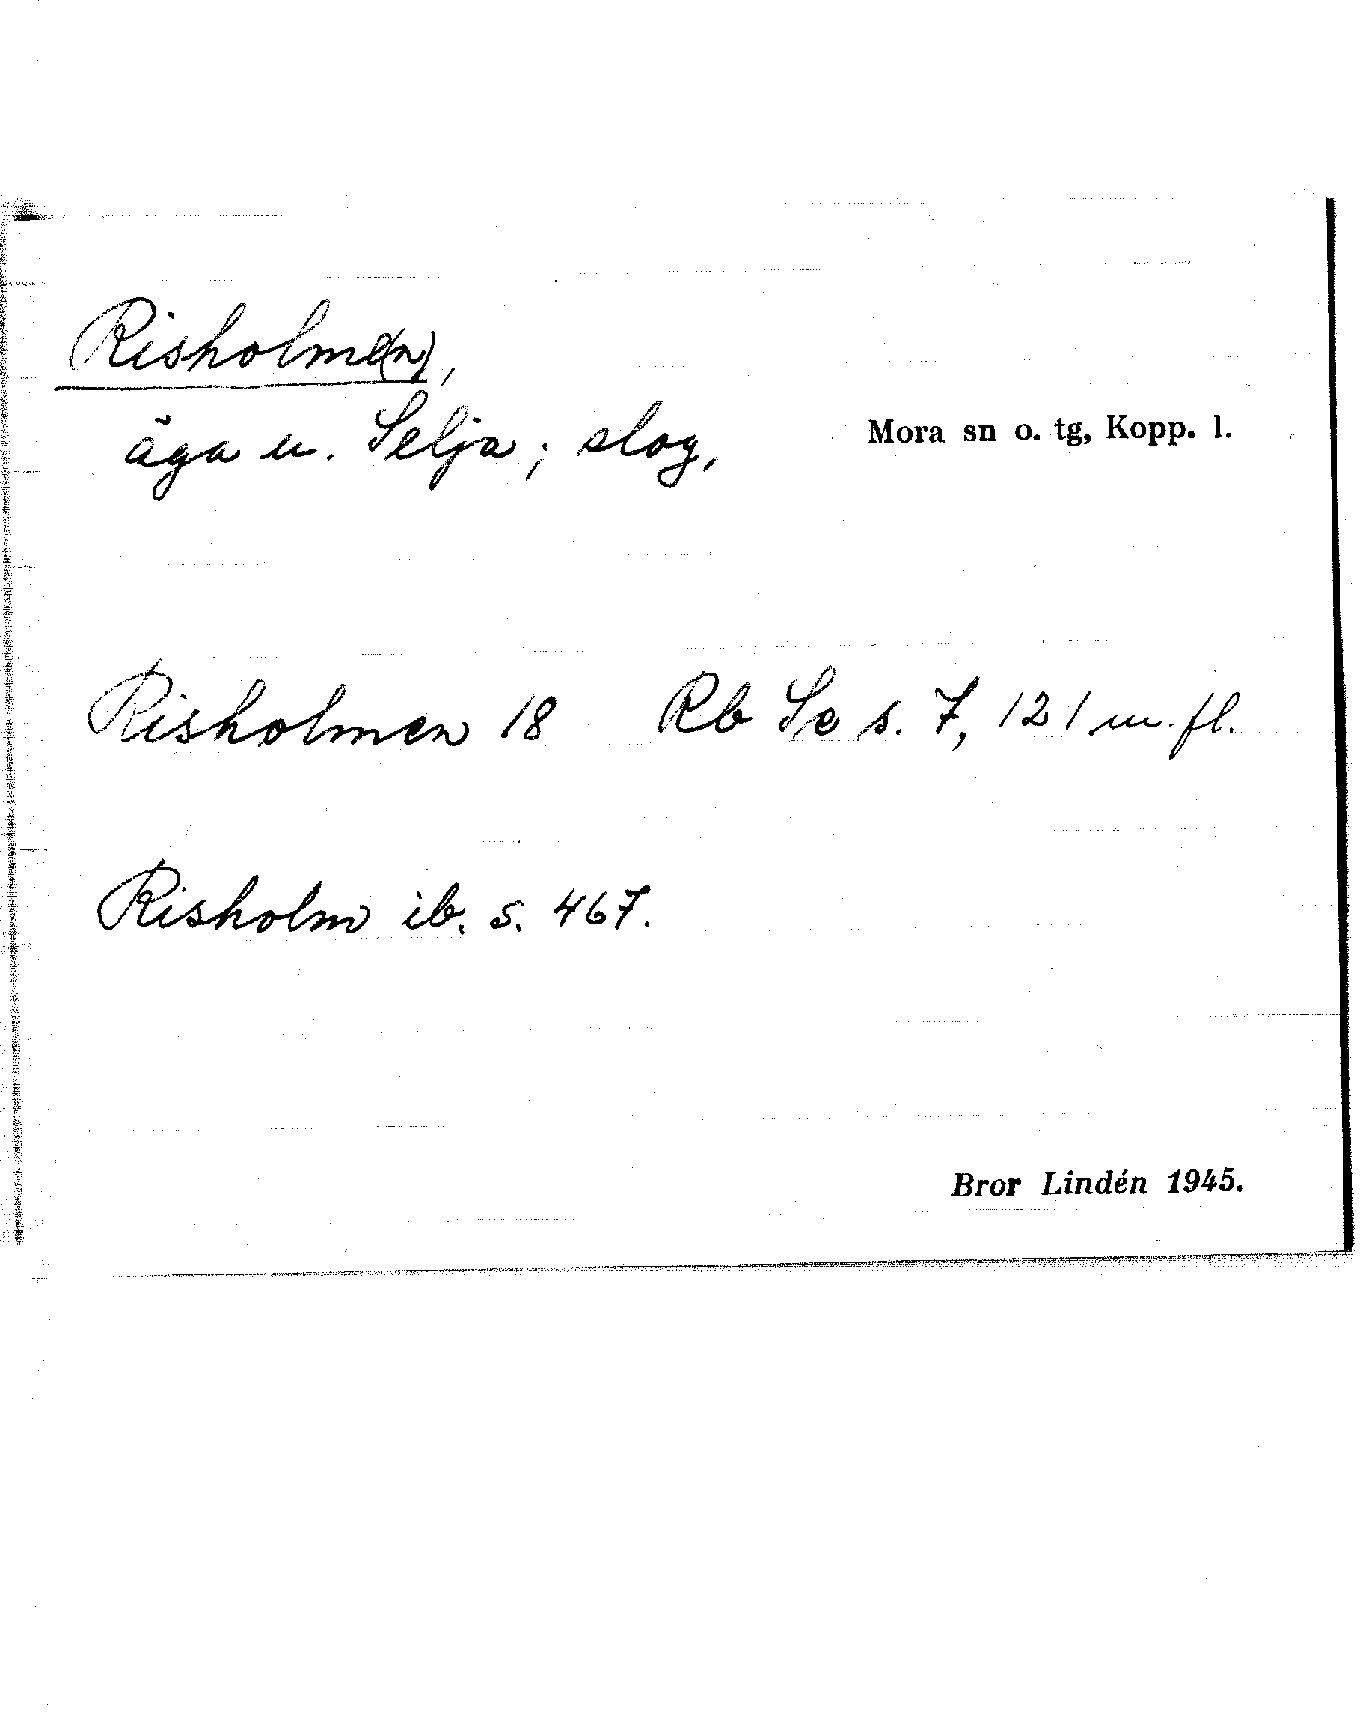 Risholme(n),
äga u. Selja; slog,
Mora sn o. tg, Kopp. l.
Risholmen 18 Rb Se s. 7, 121 m. fl.
Risholm ib. s. 467.
Bror Lindén 1945.